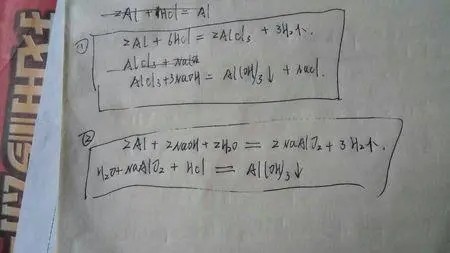 2Al + 6HCl = Al
①
2Al + 6HCl = 2AlCl₃ + 3H₂↑.
AlCl₃ + NaOH
AlCl₃+3NaOH = Al(OH)₃↓ + NaCl.
②
2Al + 2NaOH + 2H₂O = 2NaAlO₂ + 3H₂↑.
H₂O+NaAlO₂ + HCl = Al(OH)₃↓